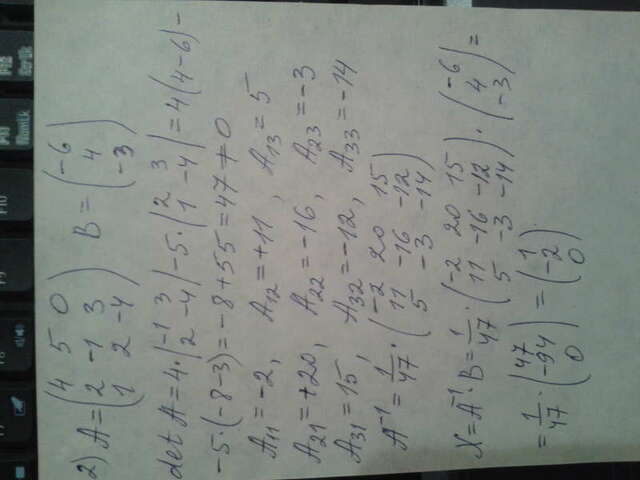 2) A = (4 5 0
2 -1 3
1 2 -4) B = (-6
4
-3)
det A = 4·|-1 3
2 -4| -5·|2 3
1 -4| = 4(4-6)-
-5·(-8-3) = -8+55 = 47 ≠ 0
A11 = -2, A12 = +11, A13 = 5
A21 = +20, A22 = -16, A23 = -3
A31 = 15, A32 = -12, A33 = -14
A⁻¹ = 1/47 · (-2 20 15
11 -16 -12
5 -3 -14)
X = A⁻¹·B = 1/47 · (-2 20 15
11 -16 -12
5 -3 -14) · (-6
4
-3) =
= 1/47 · (47
-94
0) = (1
-2
0)